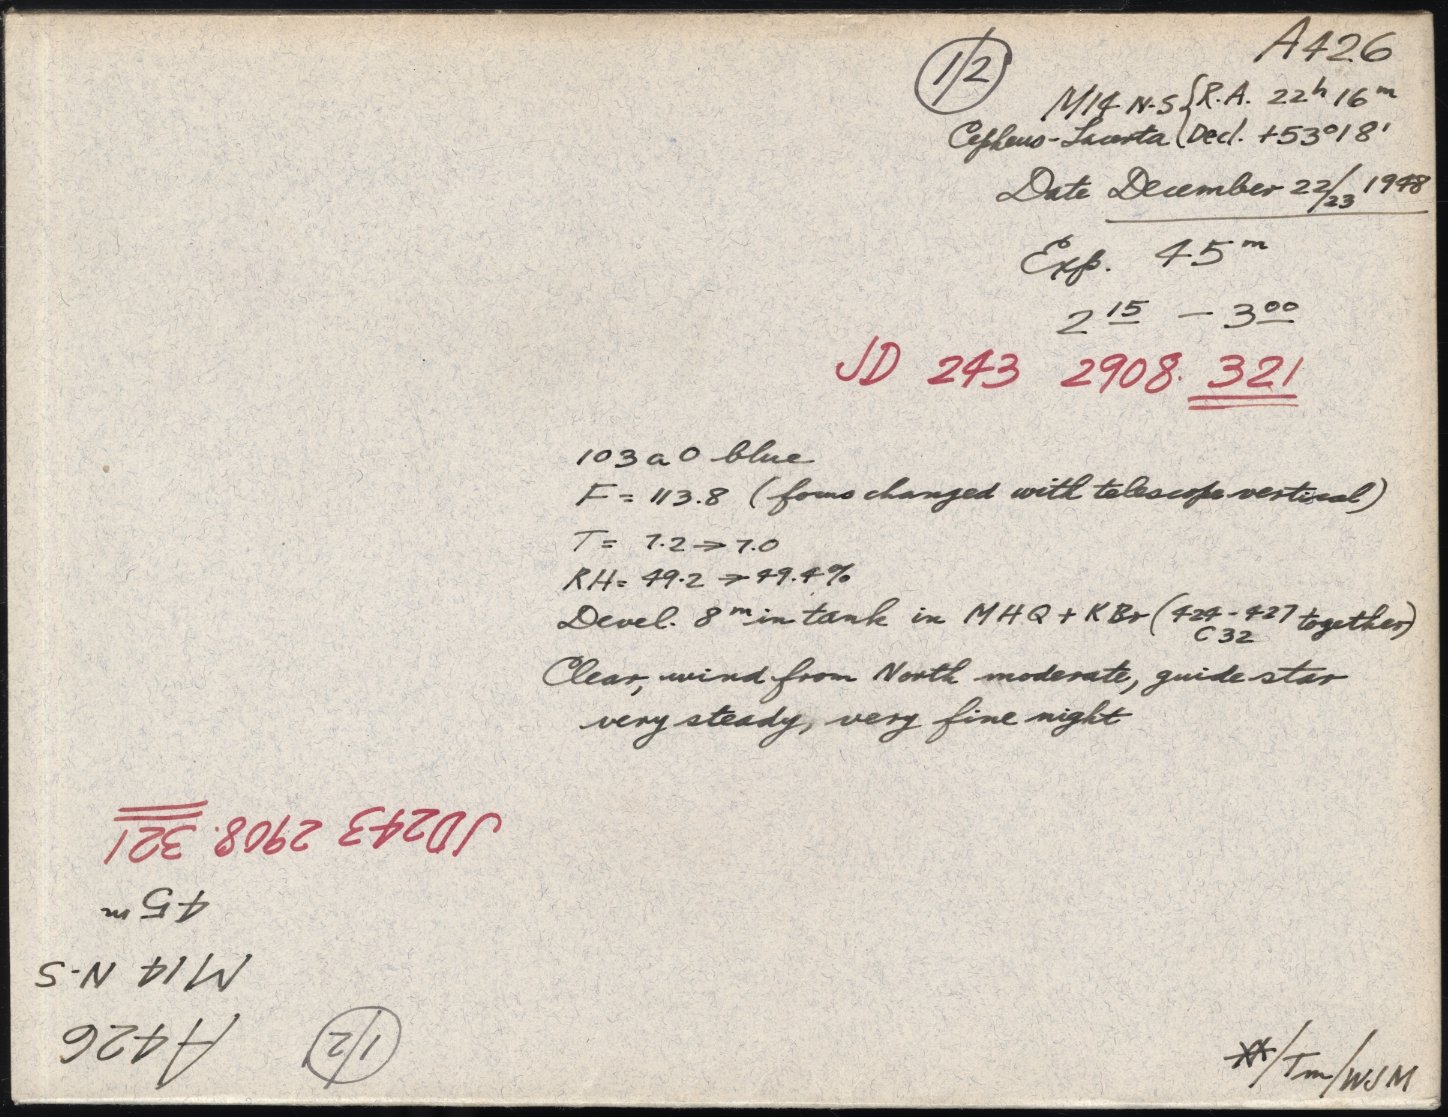 1/2
A426
M14 N-S { R.A. 22h 16m
Cepheus-Lacerta { Decl. +53°18'
Date December 22/23 1948
Exp. 45m
2 15 – 3 00
JD 243 2908.321
103aO blue
F = 113.8 (focus changed with telescope vertical)
T = 7.2 → 7.0
RH = 49.2 → 49.4%
Devel. 8m in tank in MHQ + KBr (424-427 together)
C32
Clear, wind from North moderate, guide star
very steady, very fine night
JD243 2908.321
45m
M14 N-S
A426
1/2
/Tm/WJM